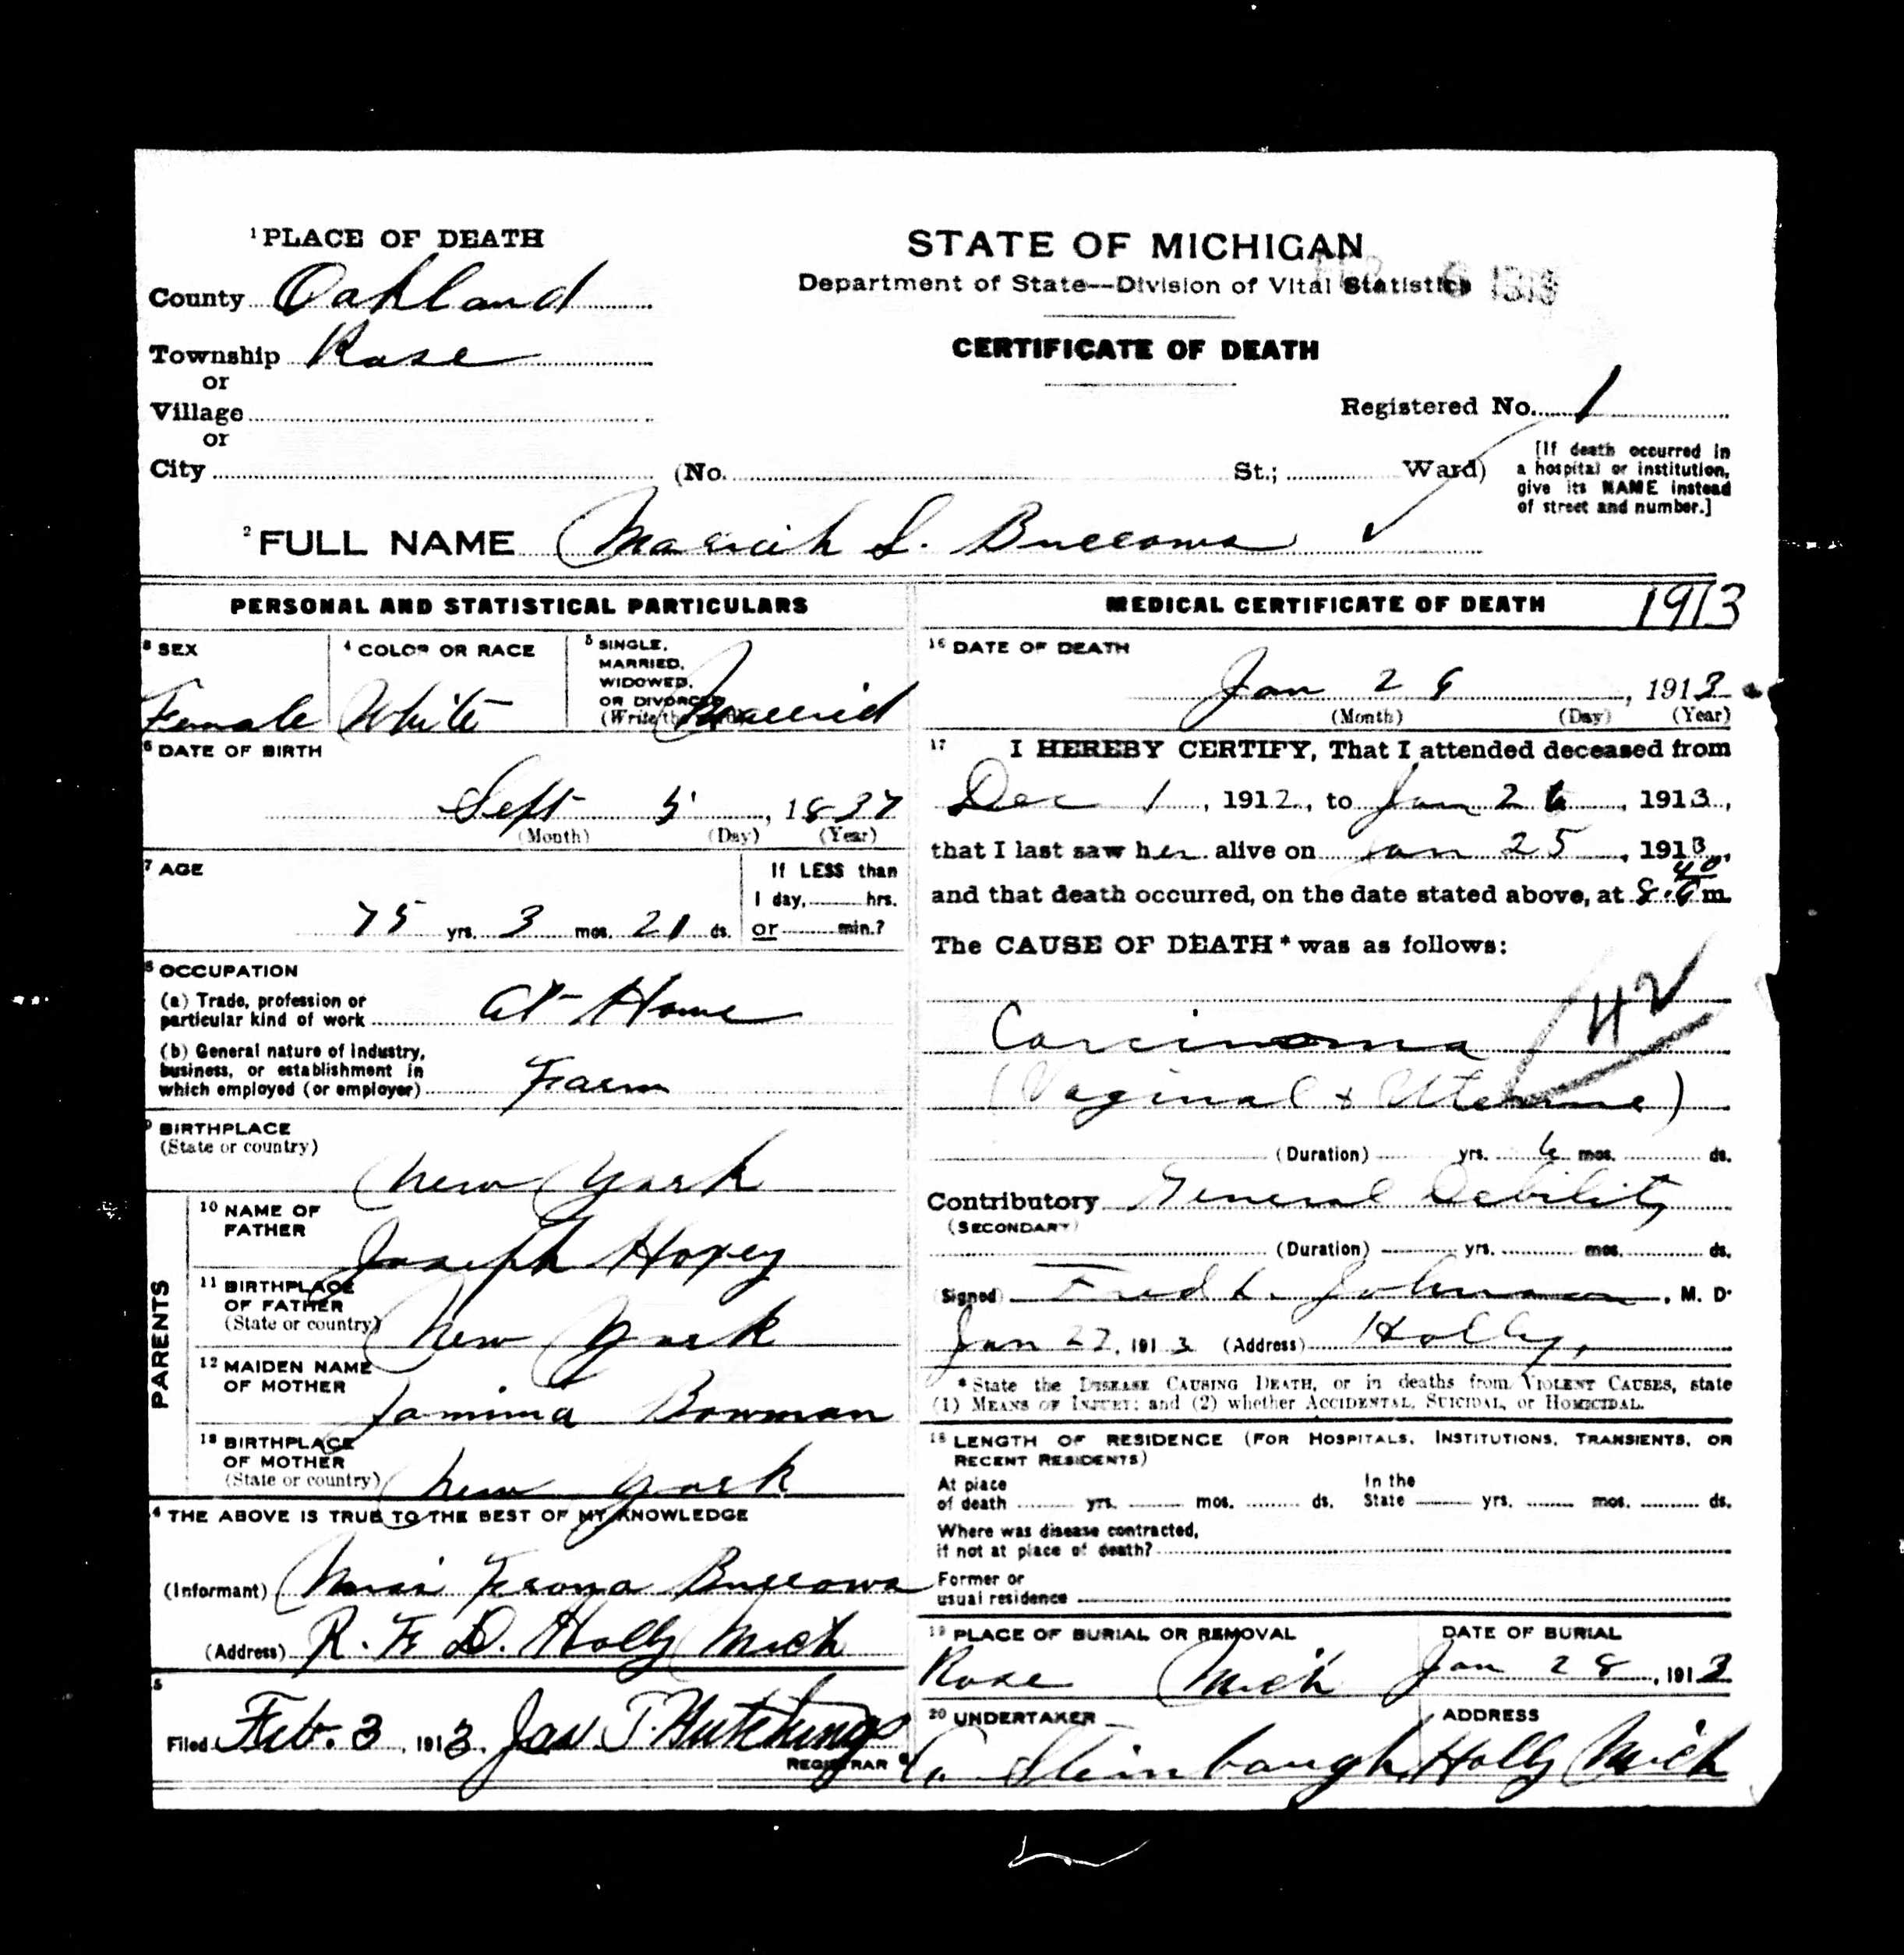 1 PLACE OF DEATH
County Oakland
Township Rose
or
Village
or
City (No. St.; Ward)
STATE OF MICHIGAN
Department of State—Division of Vital Statistics
CERTIFICATE OF DEATH
Registered No. 1
[If death occurred in
a hospital or institution,
give its NAME instead
of street and number.]
2 FULL NAME Mariah S. Burrows
PERSONAL AND STATISTICAL PARTICULARS
3 SEX
Female
4 COLOR OR RACE
White
5 SINGLE,
MARRIED,
WIDOWED,
OR DIVORCED
(Write the
Married
6 DATE OF BIRTH
Sept 5, 1837
(Month) (Day) (Year)
7 AGE
75 yrs. 3 mos. 21 ds.
If LESS than
1 day, hrs.
or min.?
8 OCCUPATION
(a) Trade, profession or
particular kind of work at Home
(b) General nature of industry,
business, or establishment in
which employed (or employer) Farm
9 BIRTHPLACE
(State or country)
New York
PARENTS
10 NAME OF
FATHER
Joseph Hoxey
11 BIRTHPLACE
OF FATHER
(State or country) New York
12 MAIDEN NAME
OF MOTHER
Jamima Bowman
13 BIRTHPLACE
OF MOTHER
(State or country) New York
4 THE ABOVE IS TRUE TO THE BEST OF MY KNOWLEDGE
(Informant) Burrows
(Address) R. F. D. Holly Mich
5
Filed Feb. 3, 1913. Jas. T. Hutchings
REGISTRAR
MEDICAL CERTIFICATE OF DEATH 1913
16 DATE OF DEATH
Jan 26, 1913
(Month) (Day) (Year)
17 I HEREBY CERTIFY, That I attended deceased from
Dec 1, 1912, to Jan 26, 1913,
that I last saw her alive on Jan 25, 1913,
and that death occurred, on the date stated above, at 8:40 m.
The CAUSE OF DEATH* was as follows:
42
Carcinoma
(Vaginal + Uterine)
(Duration) yrs. 6 mos. ds.
Contributory General Debility
(SECONDARY)
(Duration) yrs. mos. ds.
(Signed) Fred L. Johnson, M. D.
Jan 27, 1913 (Address) Holly,
*State the DISEASE CAUSING DEATH, or in deaths from VIOLENT CAUSES, state
(1) MEANS OF INJURY; and (2) whether ACCIDENTAL, SUICIDAL, or HOMICIDAL.
18 LENGTH OF RESIDENCE (FOR HOSPITALS, INSTITUTIONS, TRANSIENTS, OR
RECENT RESIDENTS)
At place
of death yrs. mos. ds.
In the
State yrs. mos. ds.
Where was disease contracted,
if not at place of death?
Former or
usual residence
19 PLACE OF BURIAL OR REMOVAL
Rose Mich
DATE OF BURIAL
Jan 28, 1913
20 UNDERTAKER
Steinbaugh
ADDRESS
Holly Mich